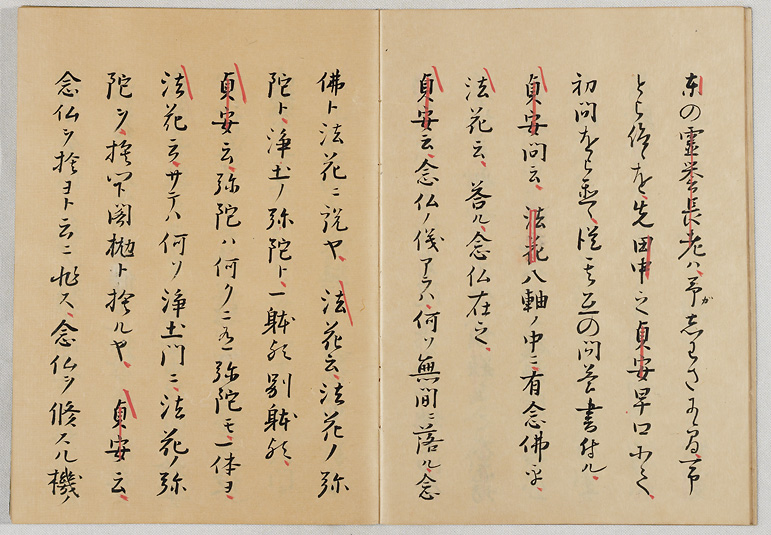 東の霊誉長老ハ、
を、先田中之貞安早口
初問を 互の問答書付ル、
貞安問云、法花八軸ノ中ニ有念佛乎、
法花云、答ル、念仏在之、
貞安云、念仏ノ儀アラハ、何ソ無間ニ落ル念
佛ト法花ニ説ヤ、法花云、法花ノ弥
陀ト、浄土ノ弥陀ト、一躰歟別躰歟、
貞安云、弥陀ハ何クニ有ル弥陀モ一体ヨ、
法花云、サテハ何ソ浄土門ニ、法花ノ弥
陀ヲ、捨閇閣抛ト捨ルヤ、貞安云、
念仏ヲ捨ヨト云ニ非ス、念仏ヲ修スル機ノ